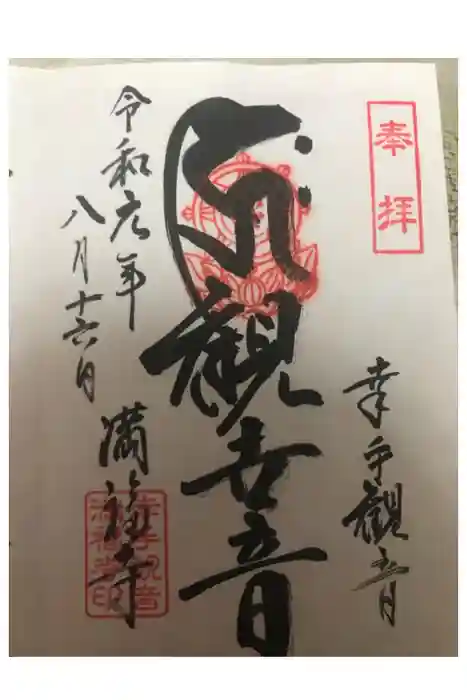 奉拝
幸手観音
観世音
令和元年
八月十六日
満福寺